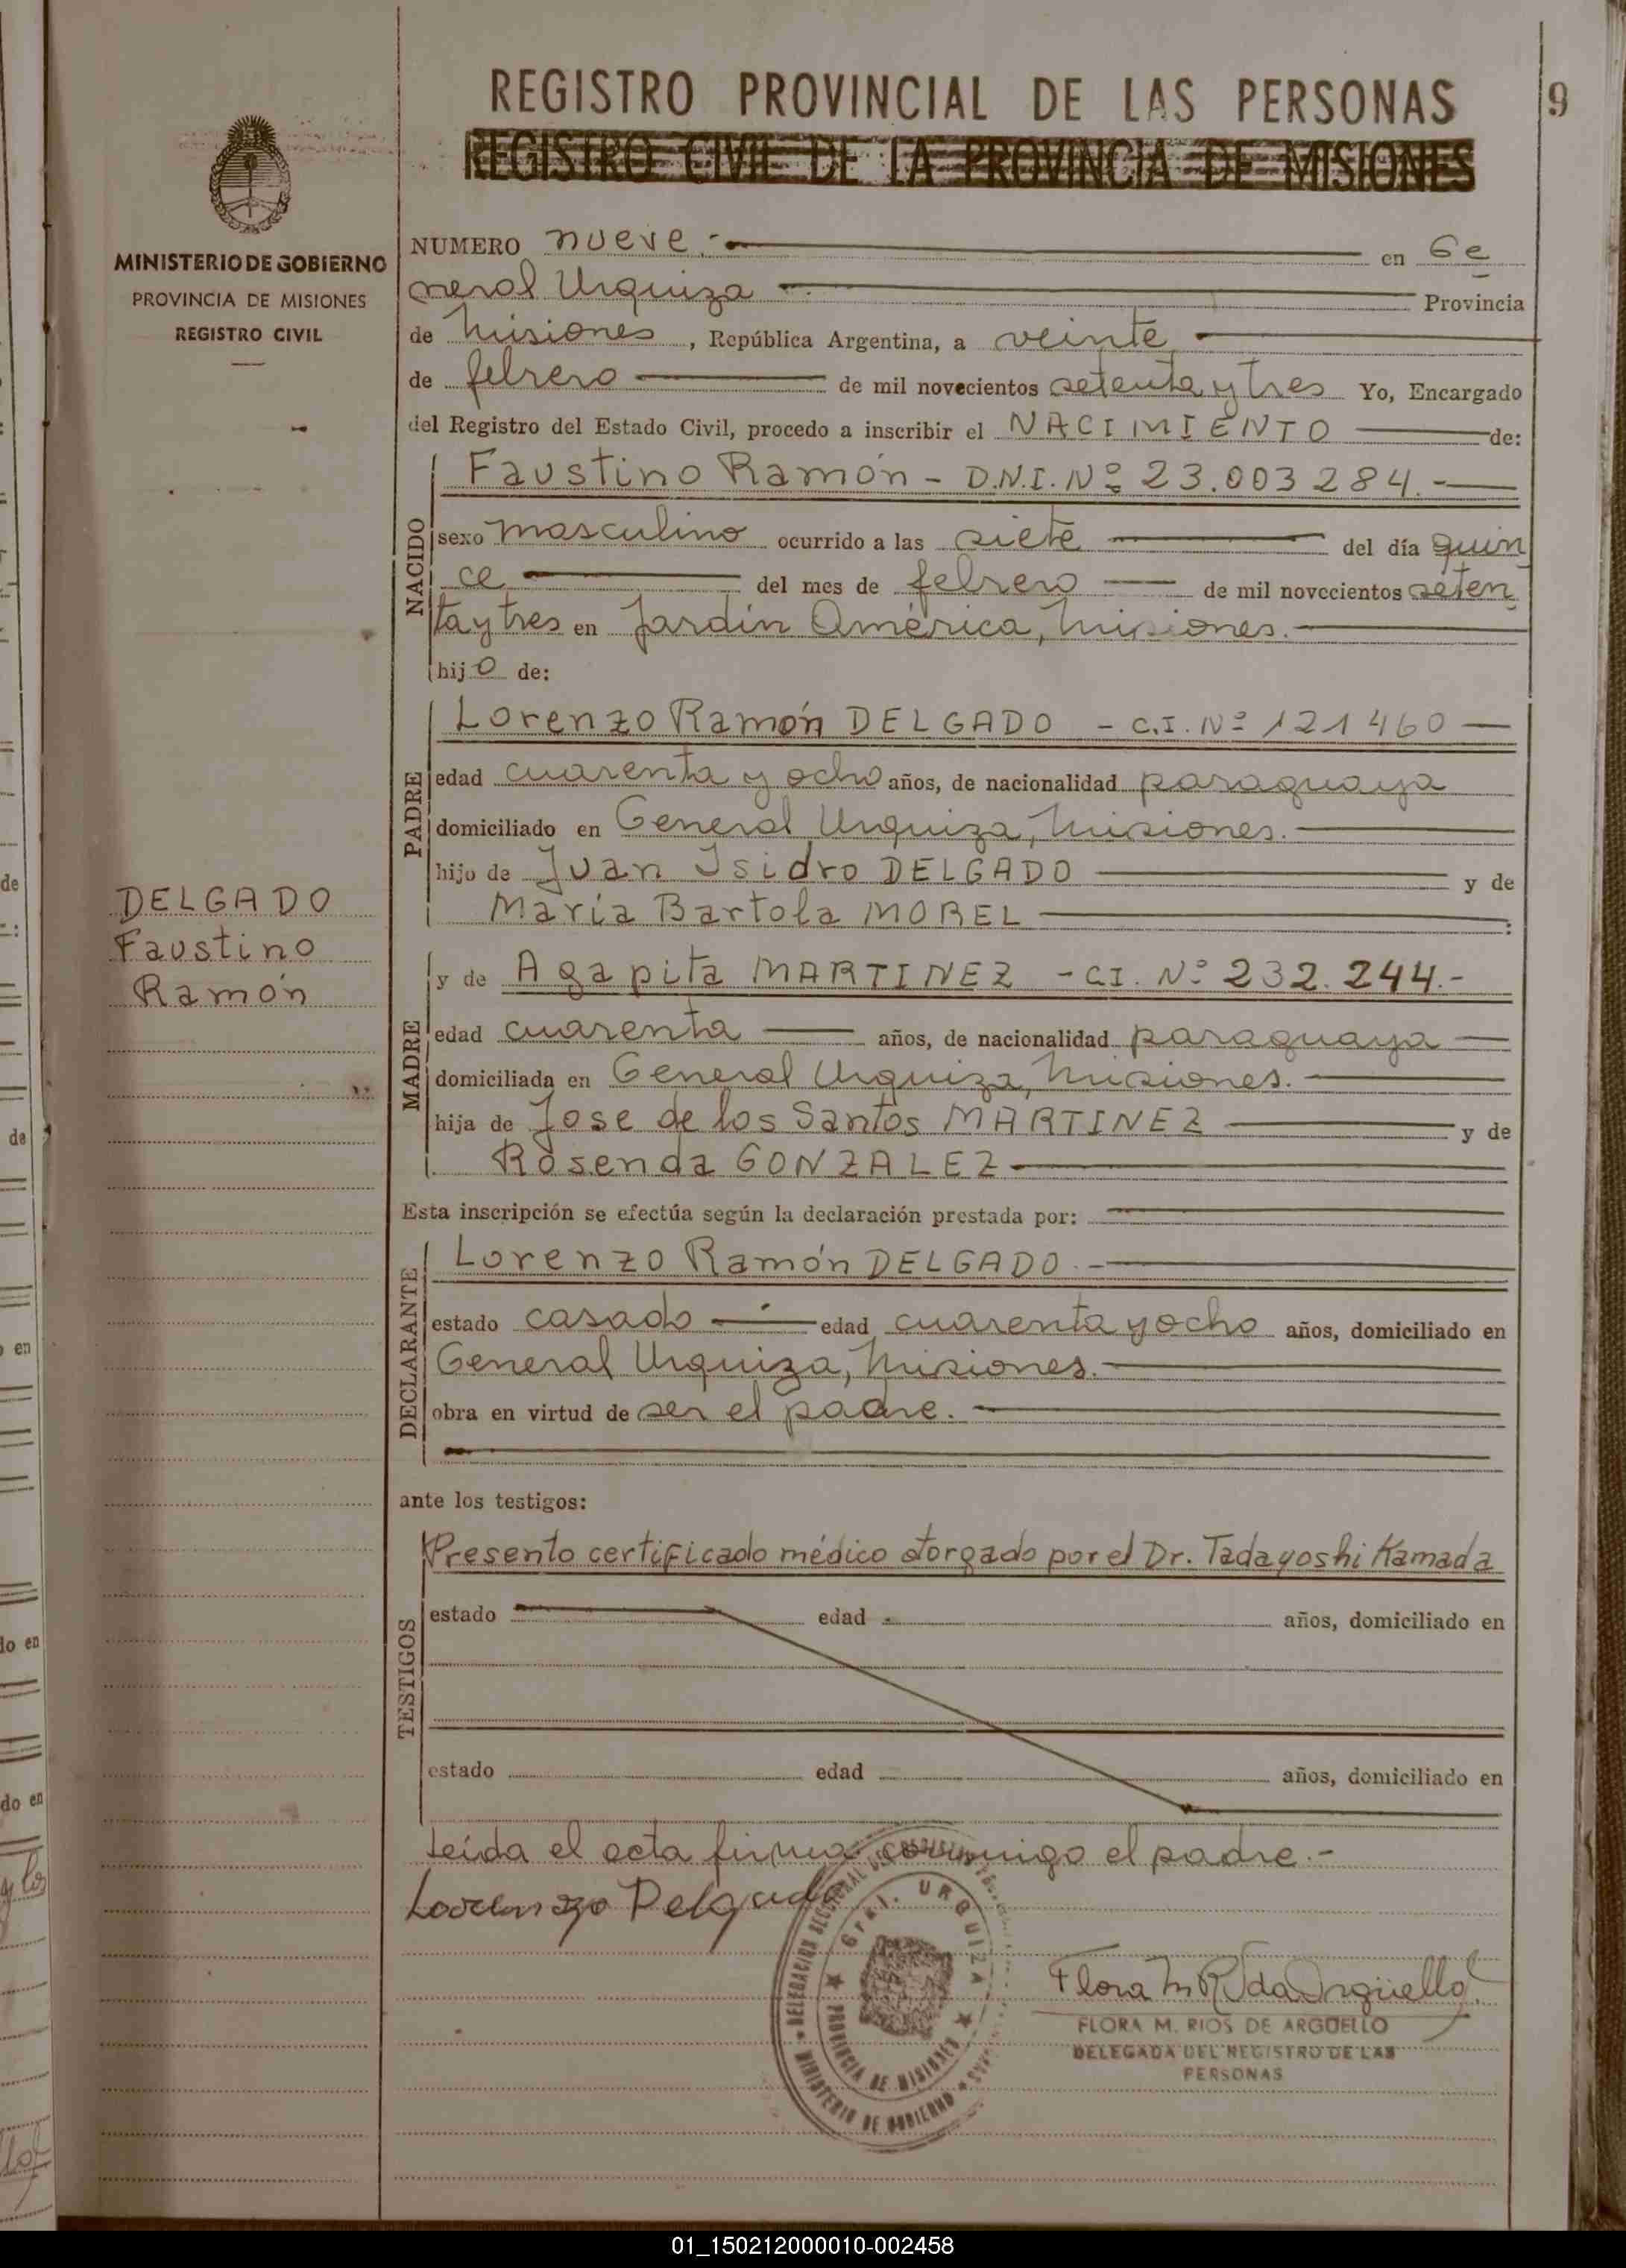 REGISTRO PROVINCIAL DE LAS PERSONAS
9
REGISTRO CIVIL DE LA PROVINCIA DE MISIONES
MINISTERIO DE GOBIERNO
PROVINCIA DE MISIONES
REGISTRO CIVIL
NUMERO nueve.- en Ge
neral Urquiza Provincia
de Misiones, República Argentina, a veinte
de febrero de mil novecientos setenta y tres Yo, Encargado
del Registro del Estado Civil, procedo a inscribir el NACIMIENTO de:
NACIDO
Faustino Ramón - D.N.I. Nº 23.003284.-
sexo masculino ocurrido a las siete del día quin
ce del mes de febrero de mil novecientos seten
ta y tres en Jardín América, Misiones.
hijo de:
PADRE
Lorenzo Ramón DELGADO - C.I. Nº 121460
edad cuarenta y ocho años, de nacionalidad paraguaya
domiciliado en General Urquiza, Misiones.
hijo de Juan Isidro DELGADO y de
María Bartola MOREL :
DELGADO
Faustino
Ramón
MADRE
y de Agapita MARTINEZ - C.I. Nº 232.244.-
edad cuarenta años, de nacionalidad paraguaya
domiciliada en General Urquiza, Misiones.
hija de Jose de los Santos MARTINEZ y de
Rosenda GONZALEZ
Esta inscripción se efectúa según la declaración prestada por:
DECLARANTE
Lorenzo Ramón DELGADO.-
estado casado edad cuarenta y ocho años, domiciliado en
General Urquiza, Misiones.
obra en virtud de ser el padre.
ante los testigos:
TESTIGOS
Presento certificado médico otorgado por el Dr. Tadayoshi Kamada
estado edad años, domiciliado en
estado edad años, domiciliado en
Leída el acta firma conmigo el padre.-
Lorenzo Delgado
GRAL. URQUIZA
PROVINCIA DE MISIONES
MINISTERIO DE GOBIERNO
FLORA M. RIOS DE ARGÜELLO
DELEGADA DEL REGISTRO DE LAS
PERSONAS
de
:
de
en
do en
do en
y los
01_150212000010-002458